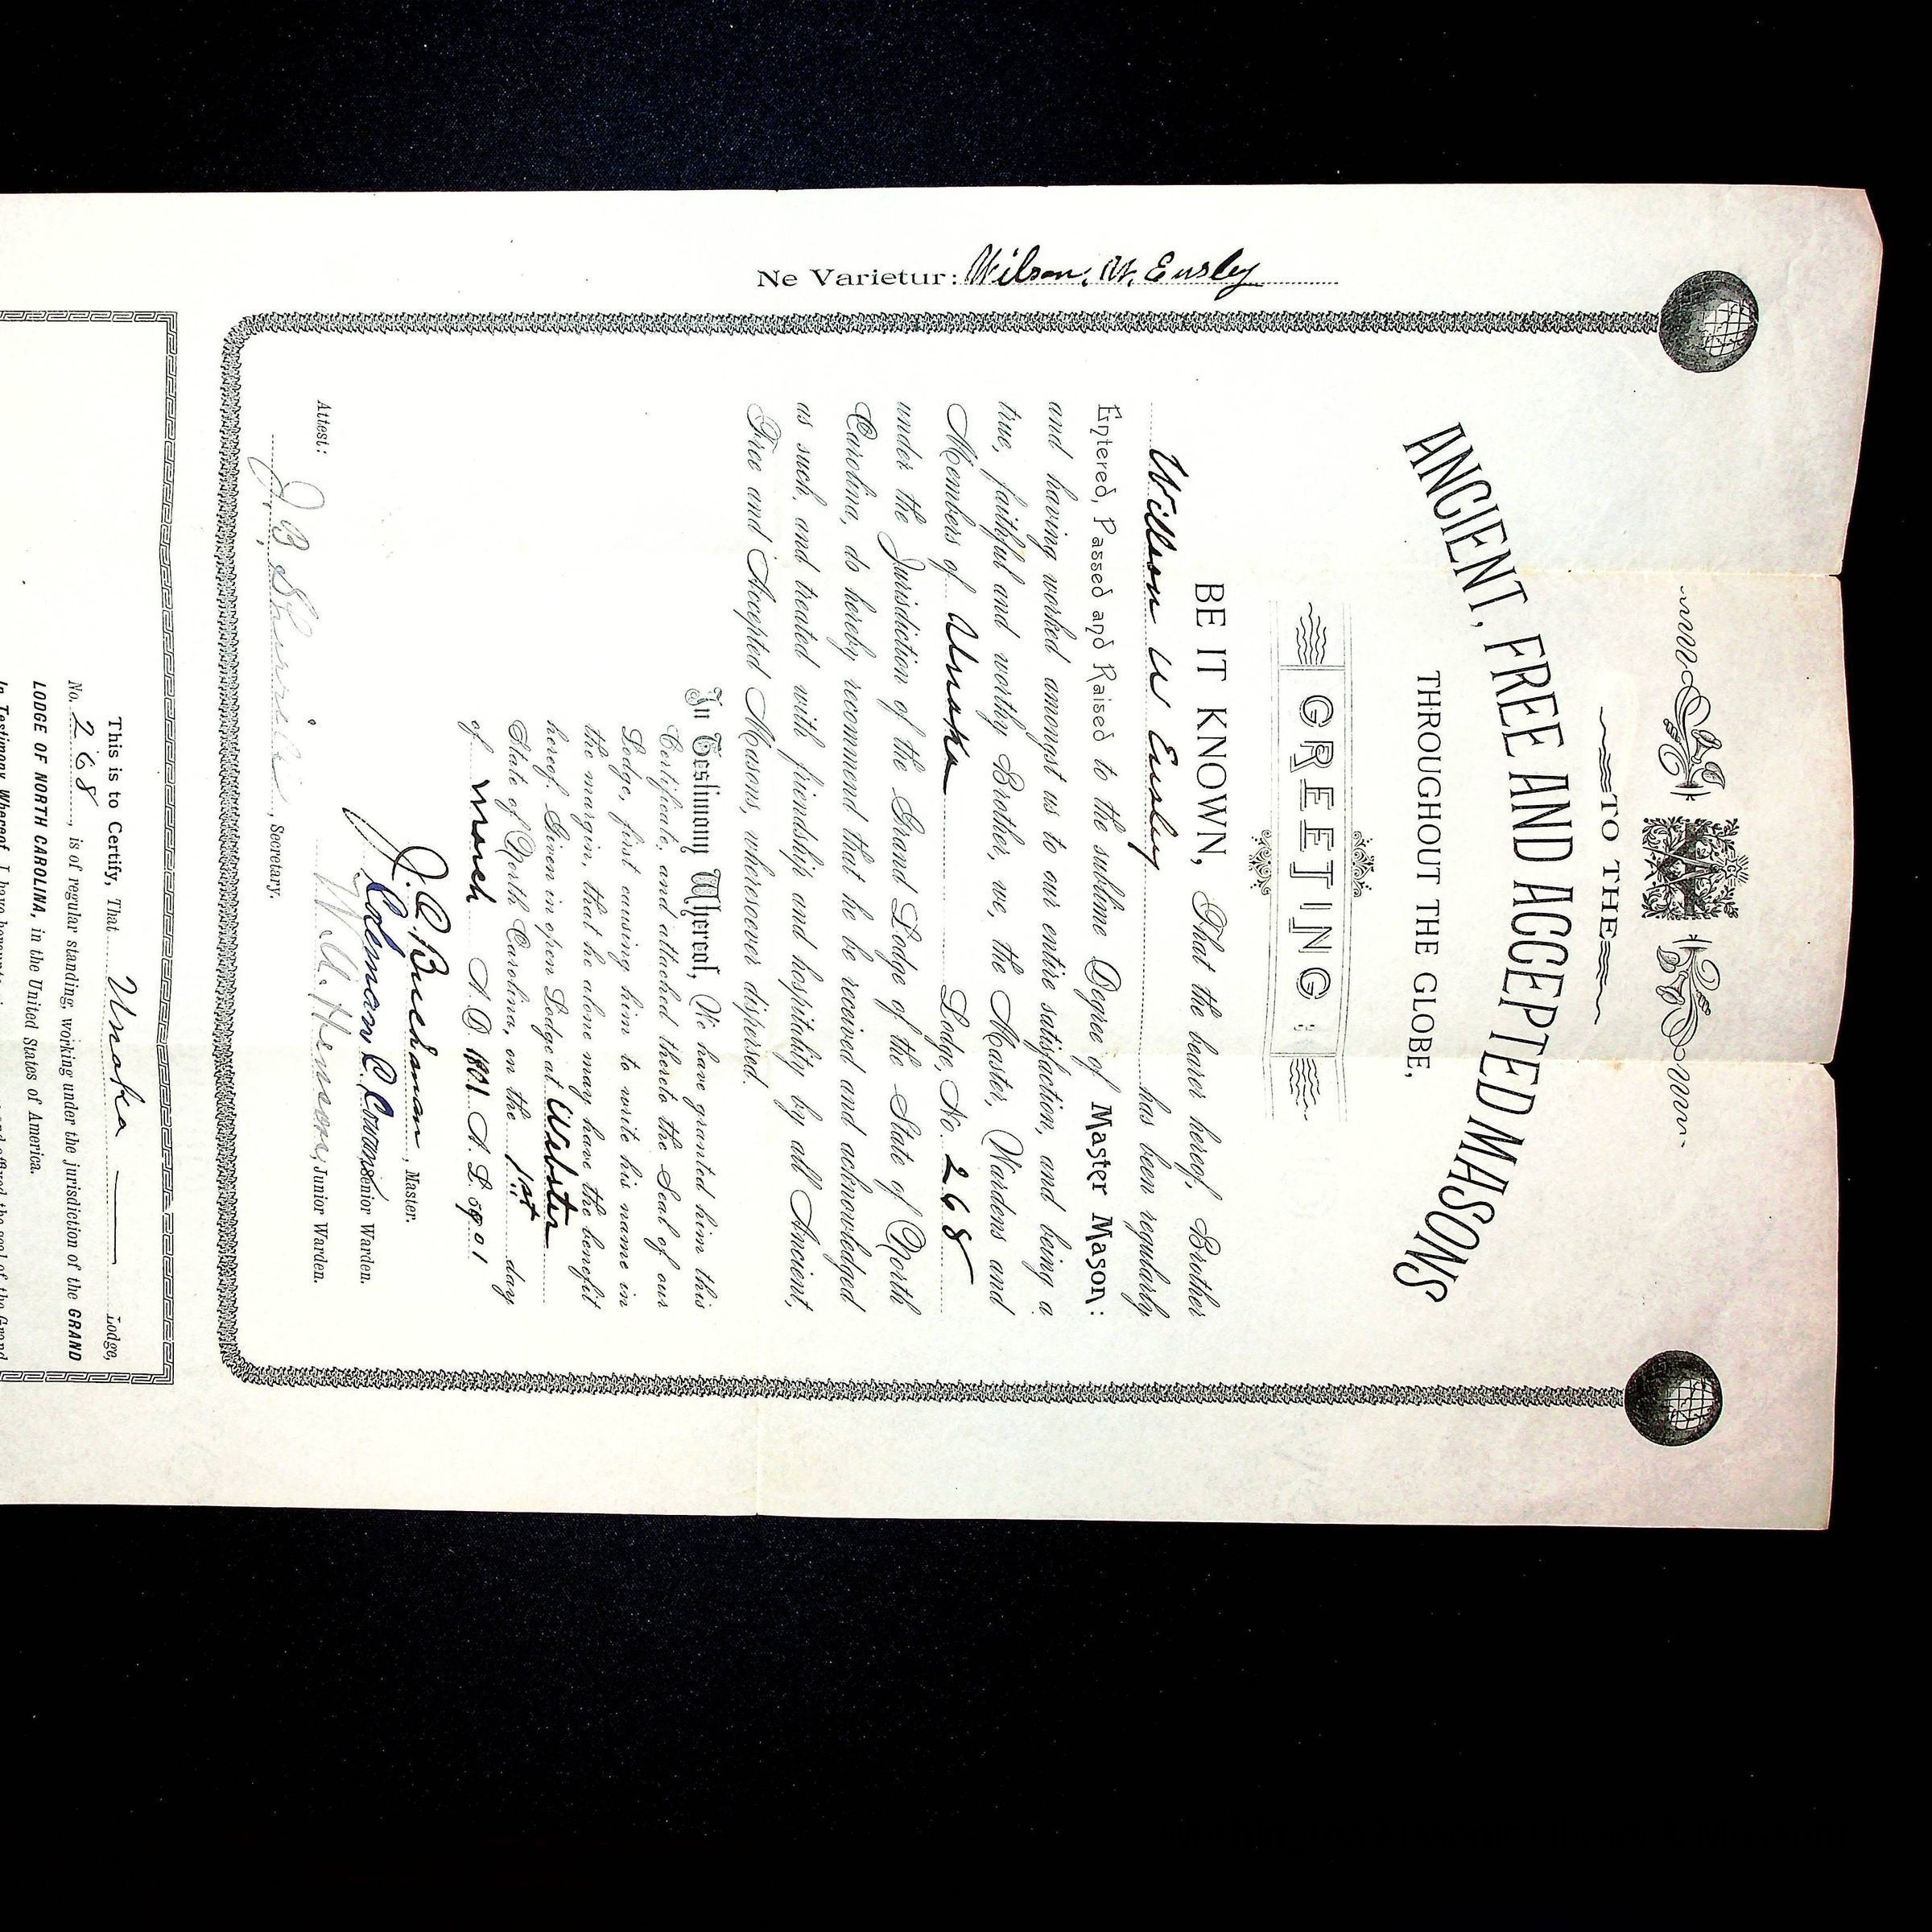 Ne Varietur: Wilson. W. Ensley
TO THE
ANCIENT, FREE AND ACCEPTED MASONS
THROUGHOUT THE GLOBE,
GREETING:
BE IT KNOWN, That the bearer hereof, Brother
Willson W Ensley has been regularly
Entered, Passed and Raised to the sublime Degree of Master Mason:
and having worked amongst us to our entire satisfaction, and being a
true, faithful and worthy Brother, we, the Master, Wardens and
Members of Unaka Lodge, No. 268
under the Jurisdiction of the Grand Lodge of the State of North
Carolina, do hereby recommend that he be received and acknowledged
as such, and treated with friendship and hospitality by all Ancient,
Free and Accepted Masons, wheresoever dispersed.
In Testimony Whereof, We have granted him this
Certificate, and attached thereto the Seal of our
Lodge, first causing him to write his name in
the margin, that he alone may have the benefit
hereof. Given in open Lodge at Webster
State of North Carolina, on the 1st day
of March A. D. 1901 A. L. 5901
J. C. Buchanan, Master.
Coleman C. Cowan Senior Warden.
Junior Warden.
Attest:
J B Sherrill, Secretary.
This is to Certify, That Unaka Lodge,
No. 268, is of regular standing, working under the jurisdiction of the GRAND
LODGE OF NORTH CAROLINA, in the United States of America.
In Testimony Whereof, I have hereunto and affixed the seal of the Grand